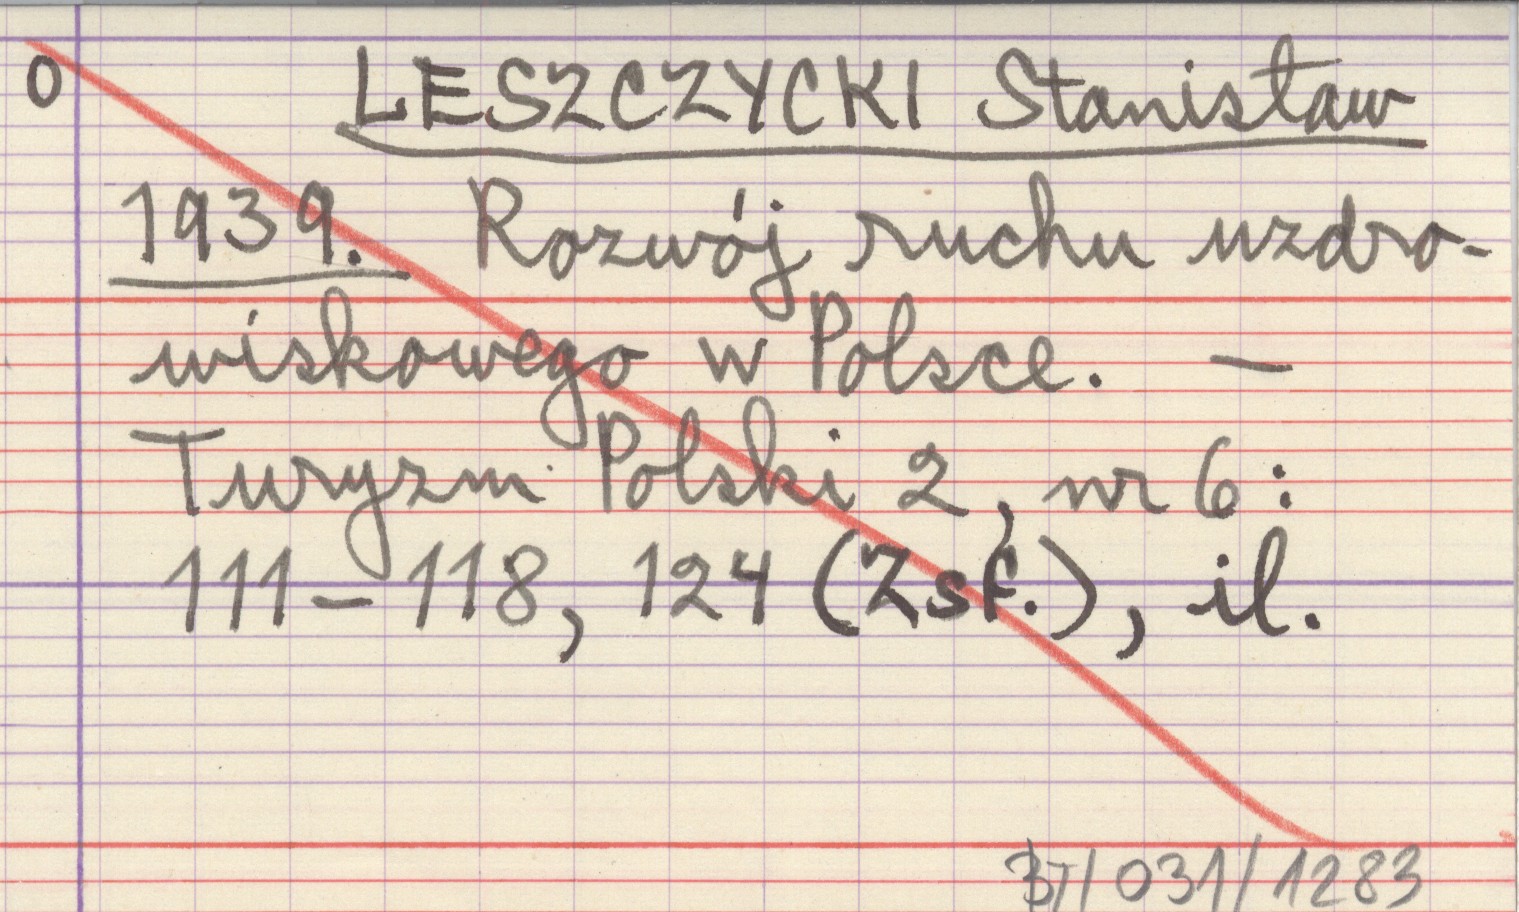 0 LESZCZYCKI Stanisław
1939. Rozwój ruchu uzdro-
wiskowego w Polsce. —
Turyzm Polski 2, nr 6:
111–118, 124 (Zsf.), il.
BT/031/1283